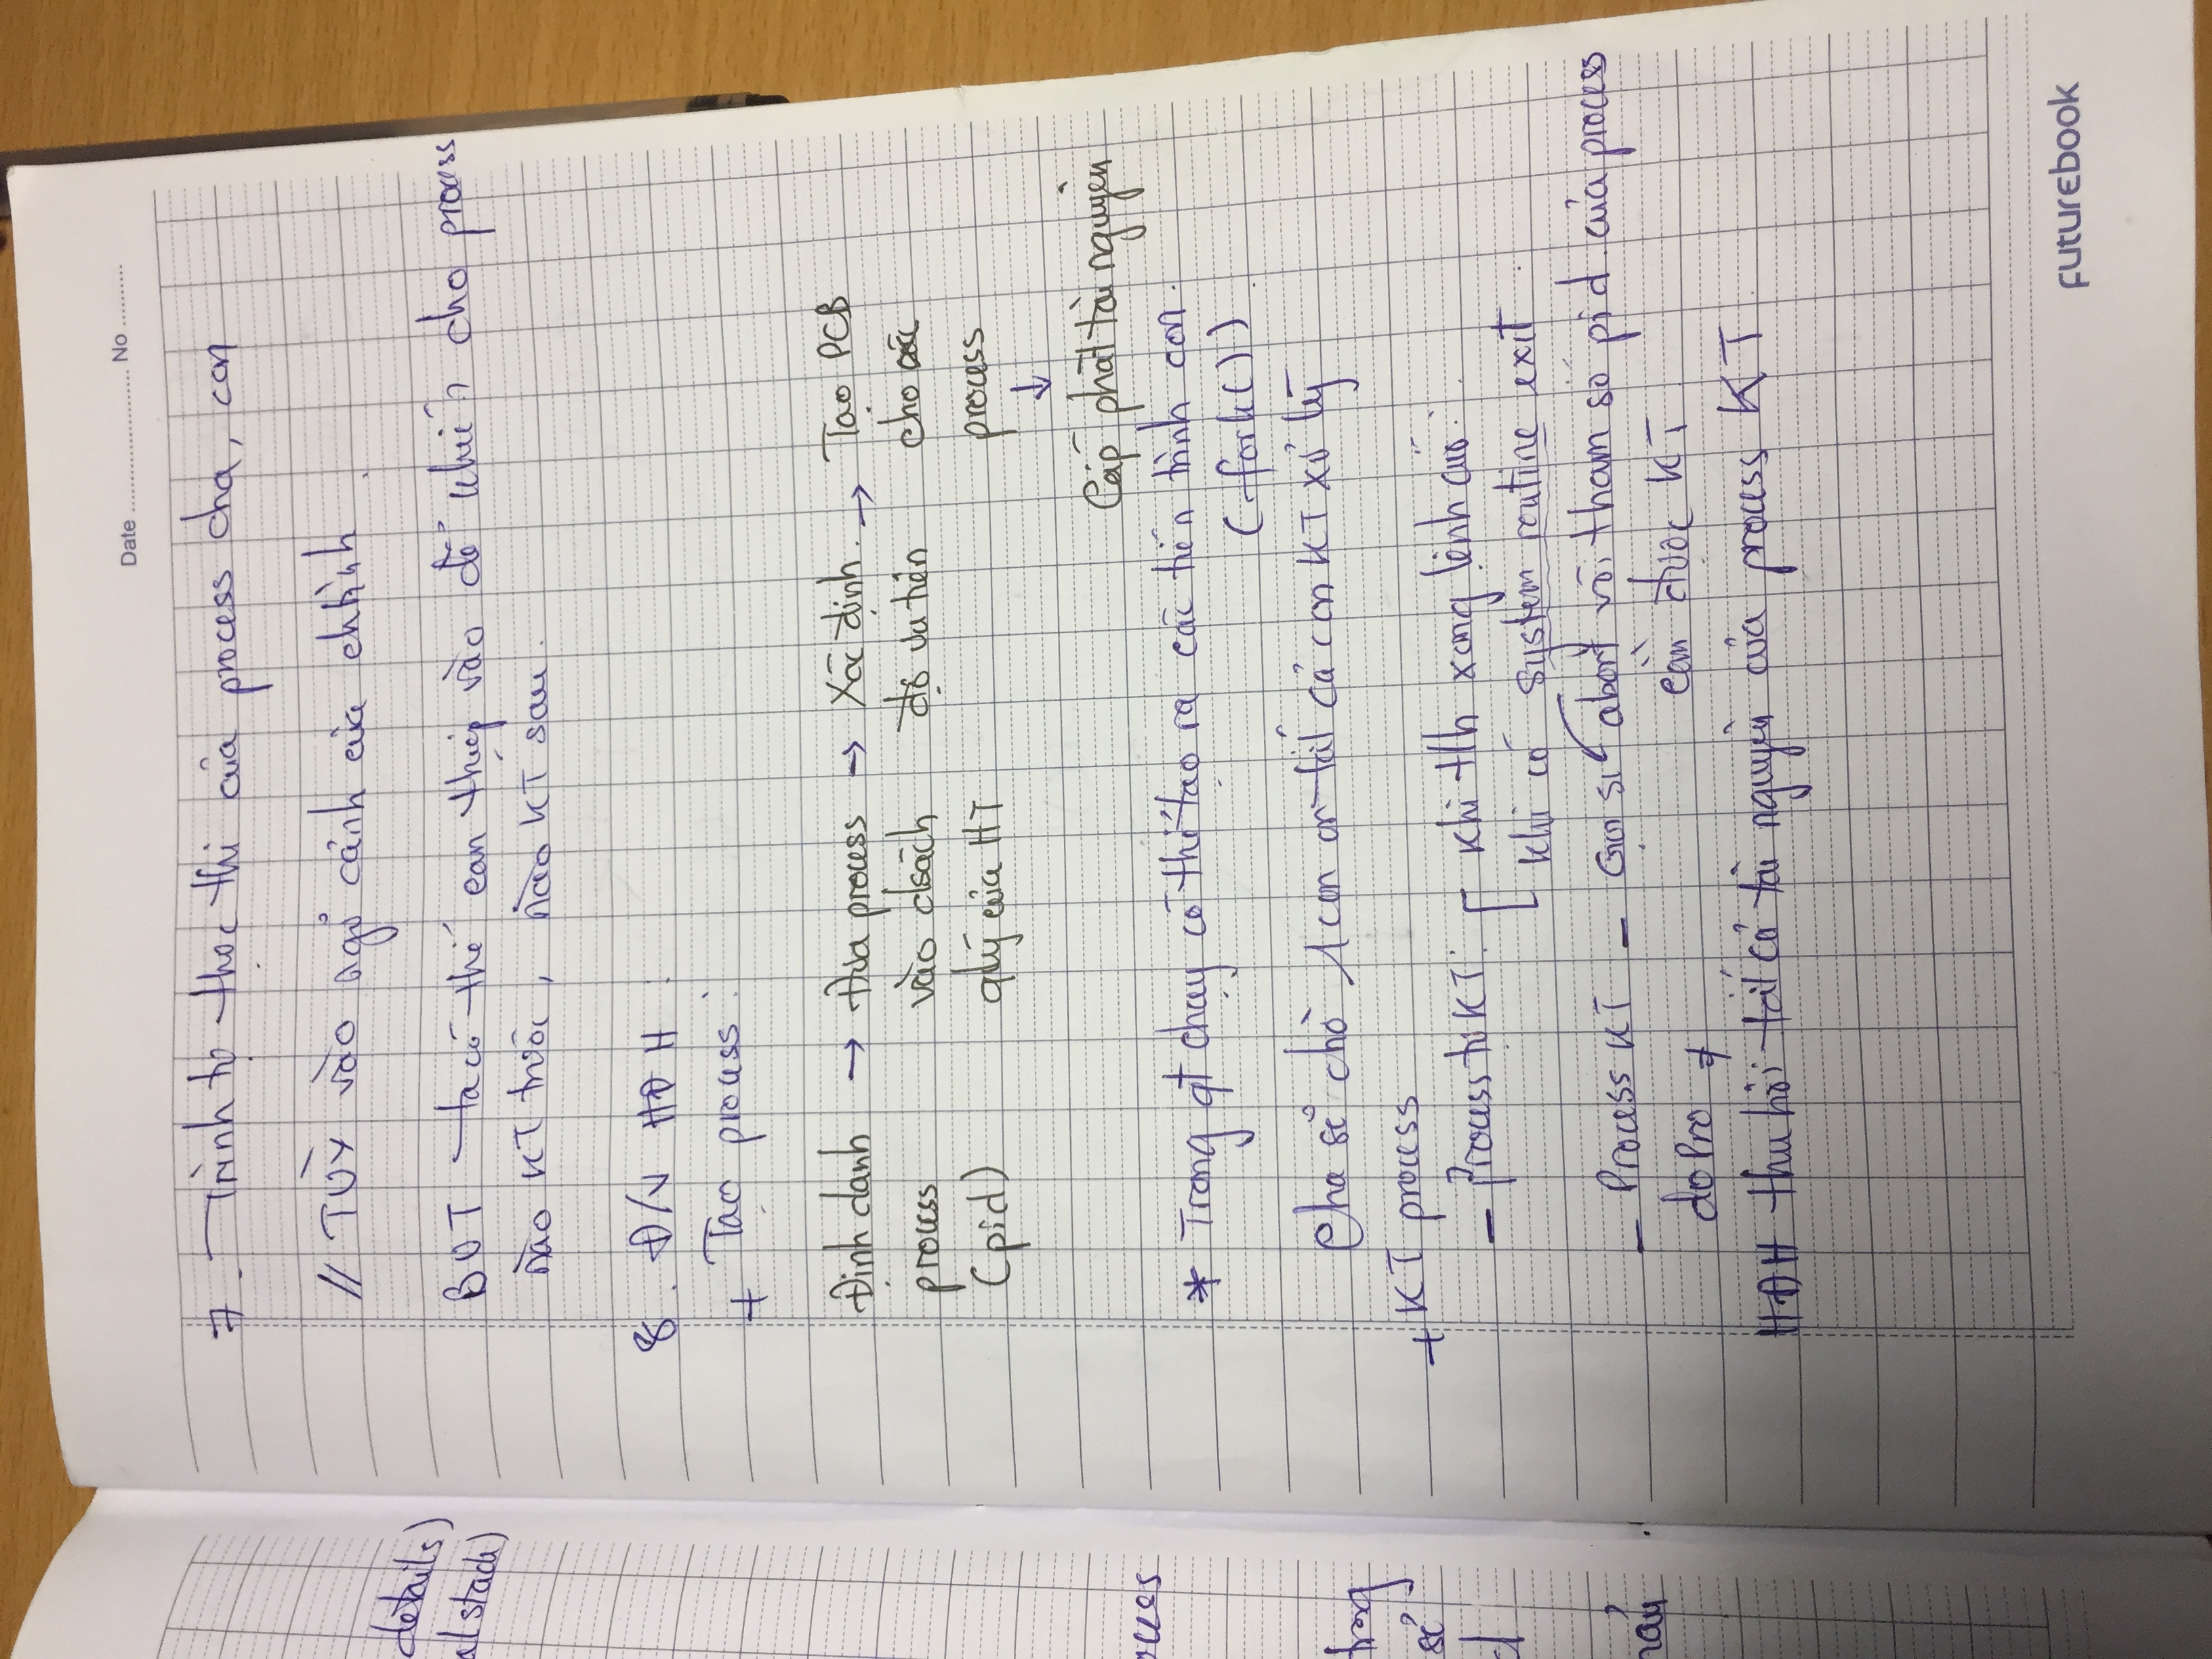 details)
al stack)
ocues
trong
sẻ
d
hảy
Date ........................ No ..........
7. Trình tự thực thi của process cha, con
// TÙY vào ngữ cảnh của chtrình
BUT ta có thể can thiệp vào để khiến cho process
nào KT trước, nào KT sau.
8. Đ/V HĐH :
+ Tạo process :
Định danh → Đưa process → Xác định → Tạo PCB
process vào dsách độ ưu tiên cho các
(pid) qlý của HT process
↓
Cấp phát tài nguyên
* Trong qt chạy có thể tạo ra các tiến trình con.
(fork())
Cha sẽ chờ 1 con or tất cả con KT xử lý
+ KT process
- Process tự KT: khi th xong lệnh cuối
khi có system routine exit
- Process KT - Gọi abort với tham số pid của process
do Pro ≠ cần được KT
HĐH thu hồi tất cả tài nguyên của process KT
FUTUREBOOK